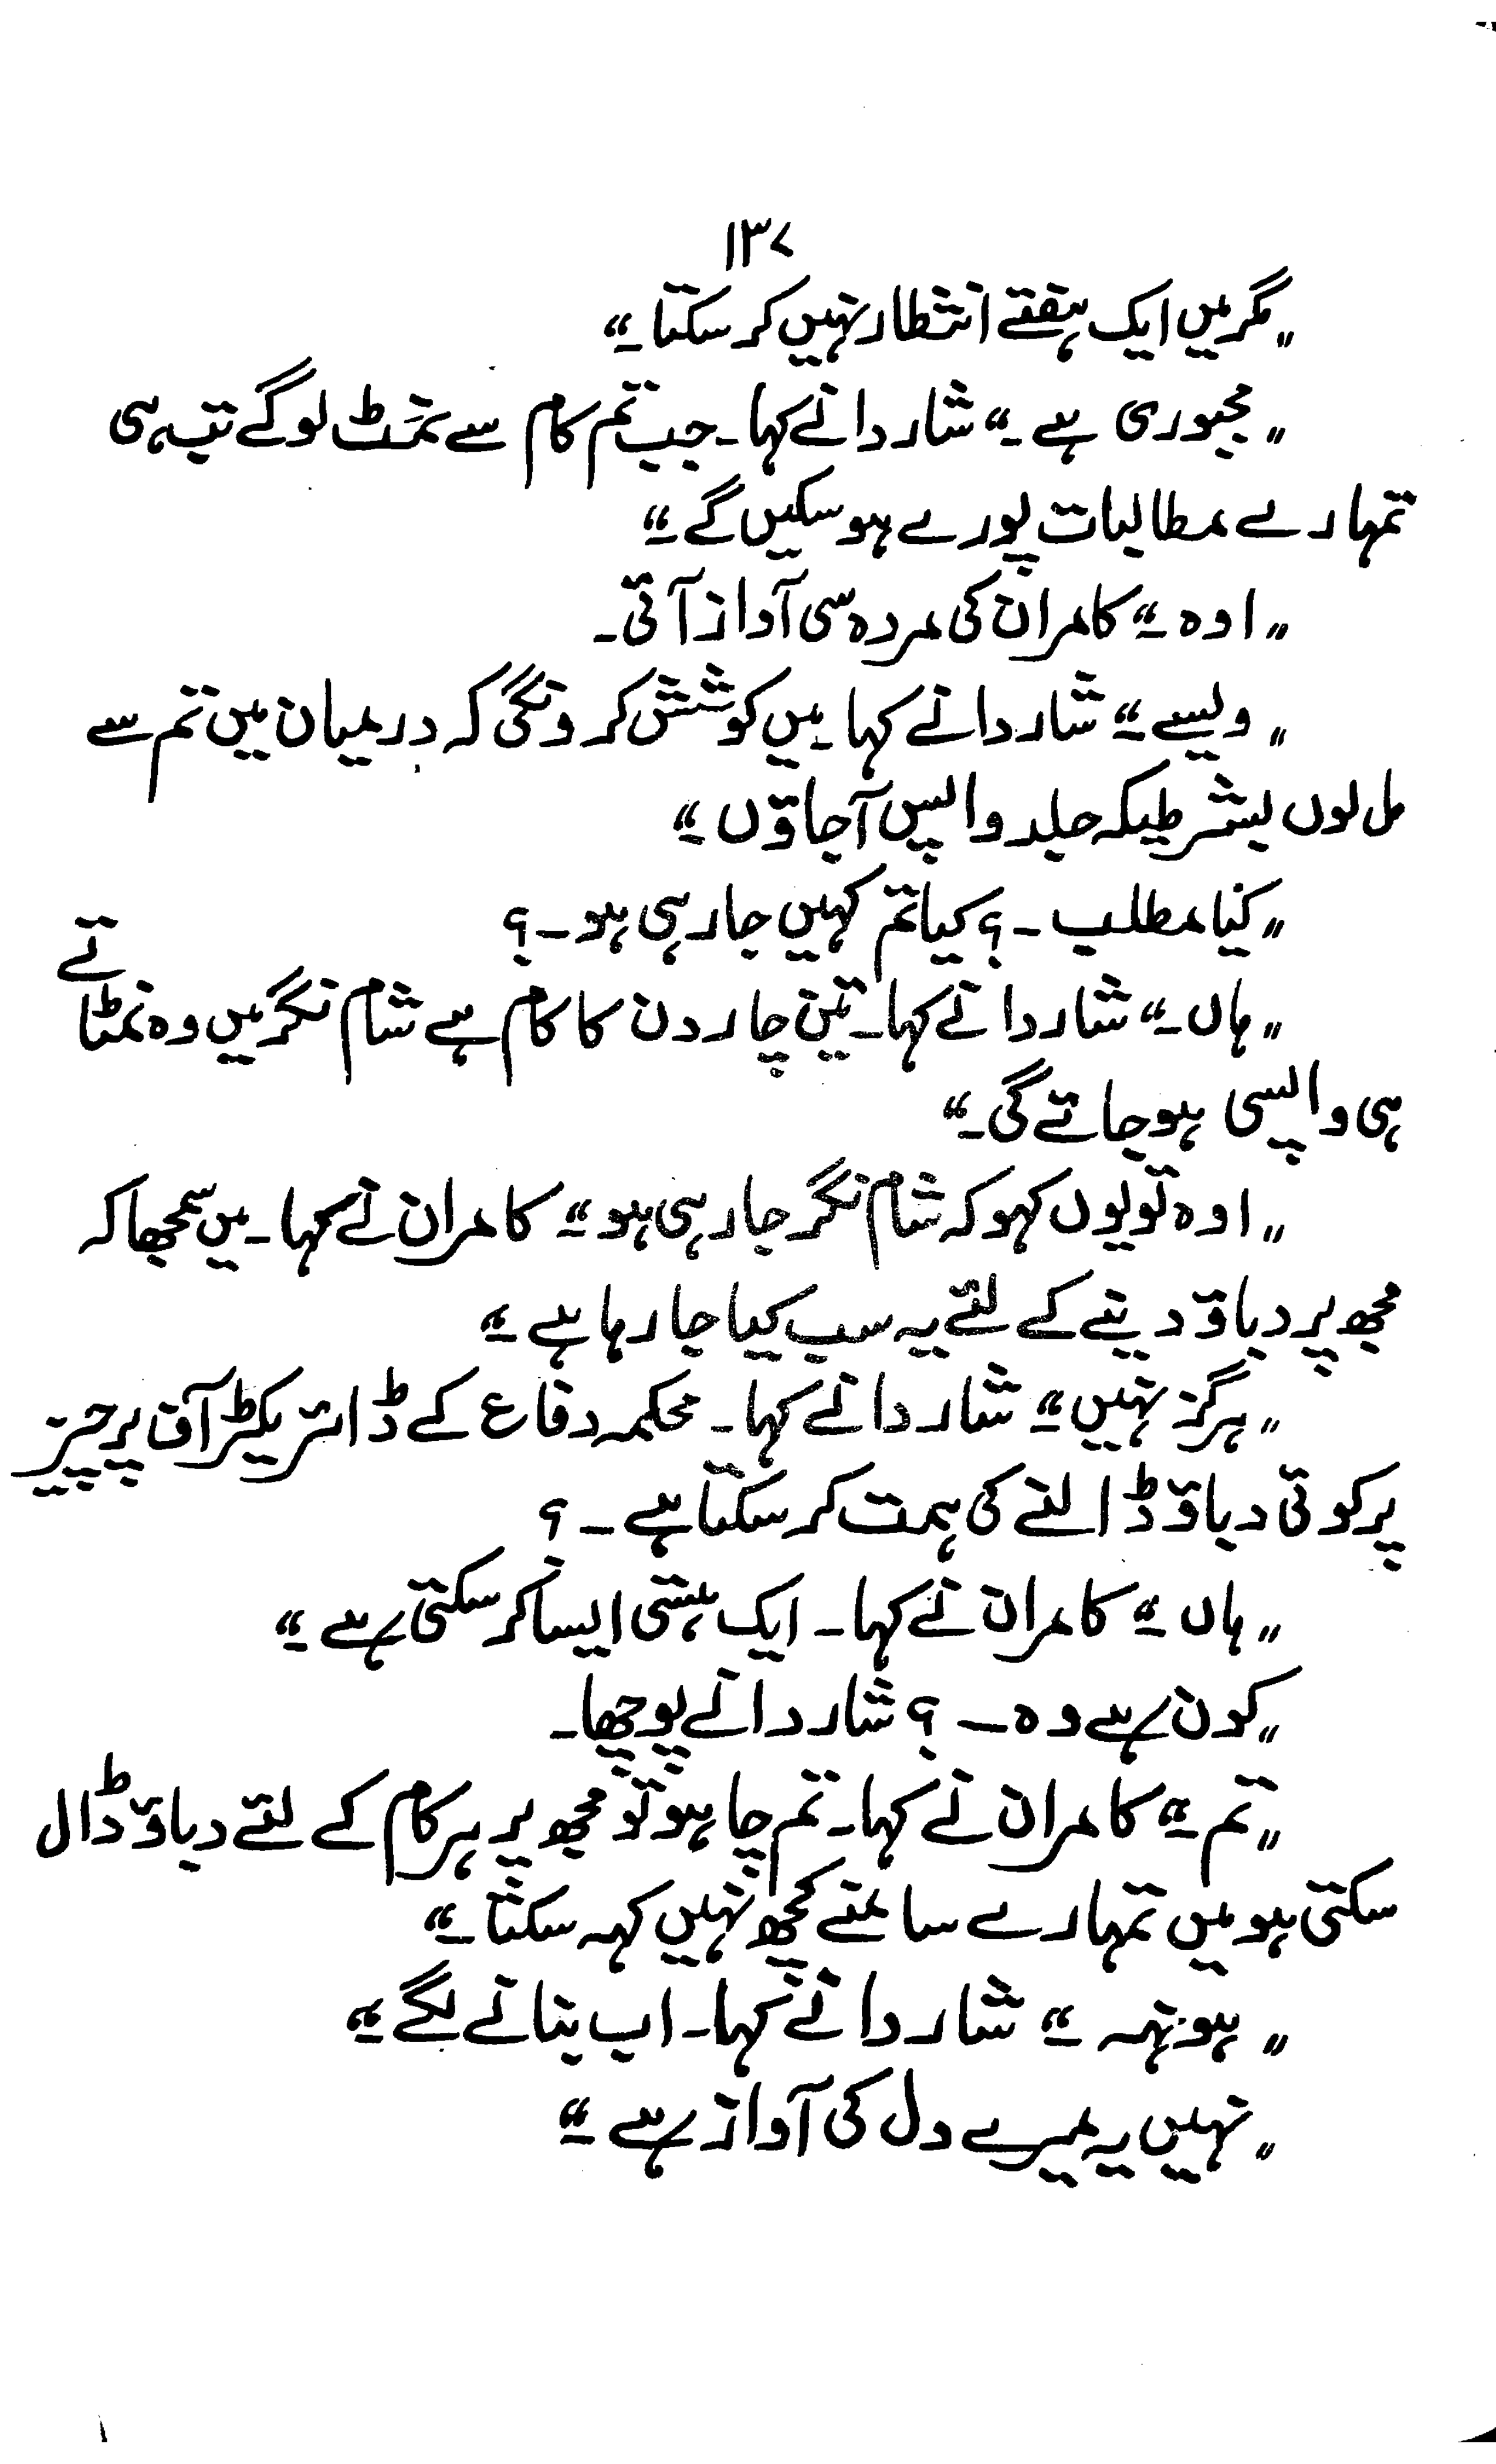 ۱۳۷
"مگر میں ایک ہفتے انتظار نہیں کر سکتا۔"
"مجبوری ہے۔" شاردا نے کہا۔ جب تم کام سے نمٹ لوگے تب ہی
تمہارے مطالبات پورے ہو سکیں گے۔"
"اوہ۔" کامران کی مردہ سی آواز آئی۔
"ویسے۔" شاردا نے کہا۔ میں کوشش کرونگی کہ درمیان میں تم سے
مل لوں بشرطیکہ جلد واپس آجاؤں۔"
"کیا مطلب۔؟ کیا تم کہیں جارہی ہو۔؟
"ہاں۔" شاردا نے کہا۔ تین چار دن کا کام ہے شام نگر میں وہ نمٹاتے
ہی واپسی ہوجائے گی۔"
"اوہ تو یوں کہو کہ شام نگر جارہی ہو۔" کامران نے کہا۔ میں سمجھا کہ
مجھ پر دباؤ دینے کے لئے یہ سب کیا جارہا ہے۔"
"ہرگز نہیں۔" شاردا نے کہا۔ محکمہ دفاع کے ڈائریکٹر آف پرچیز
پر کوئی دباؤ ڈالنے کی ہمت کر سکتا ہے۔؟
"ہاں۔" کامران نے کہا۔ ایک ہستی ایسا کر سکتی ہے۔"
"کون ہے وہ۔؟ شاردا نے پوچھا۔
"تم۔" کامران نے کہا۔ تم چاہو تو مجھ پر ہر کام کے لئے دباؤ ڈال
سکتی ہو میں تمہارے سامنے کچھ نہیں کہہ سکتا۔"
"ہونہہ۔" شاردا نے کہا۔ اب بنانے لگے۔"
"نہیں یہ میرے دل کی آواز ہے۔"